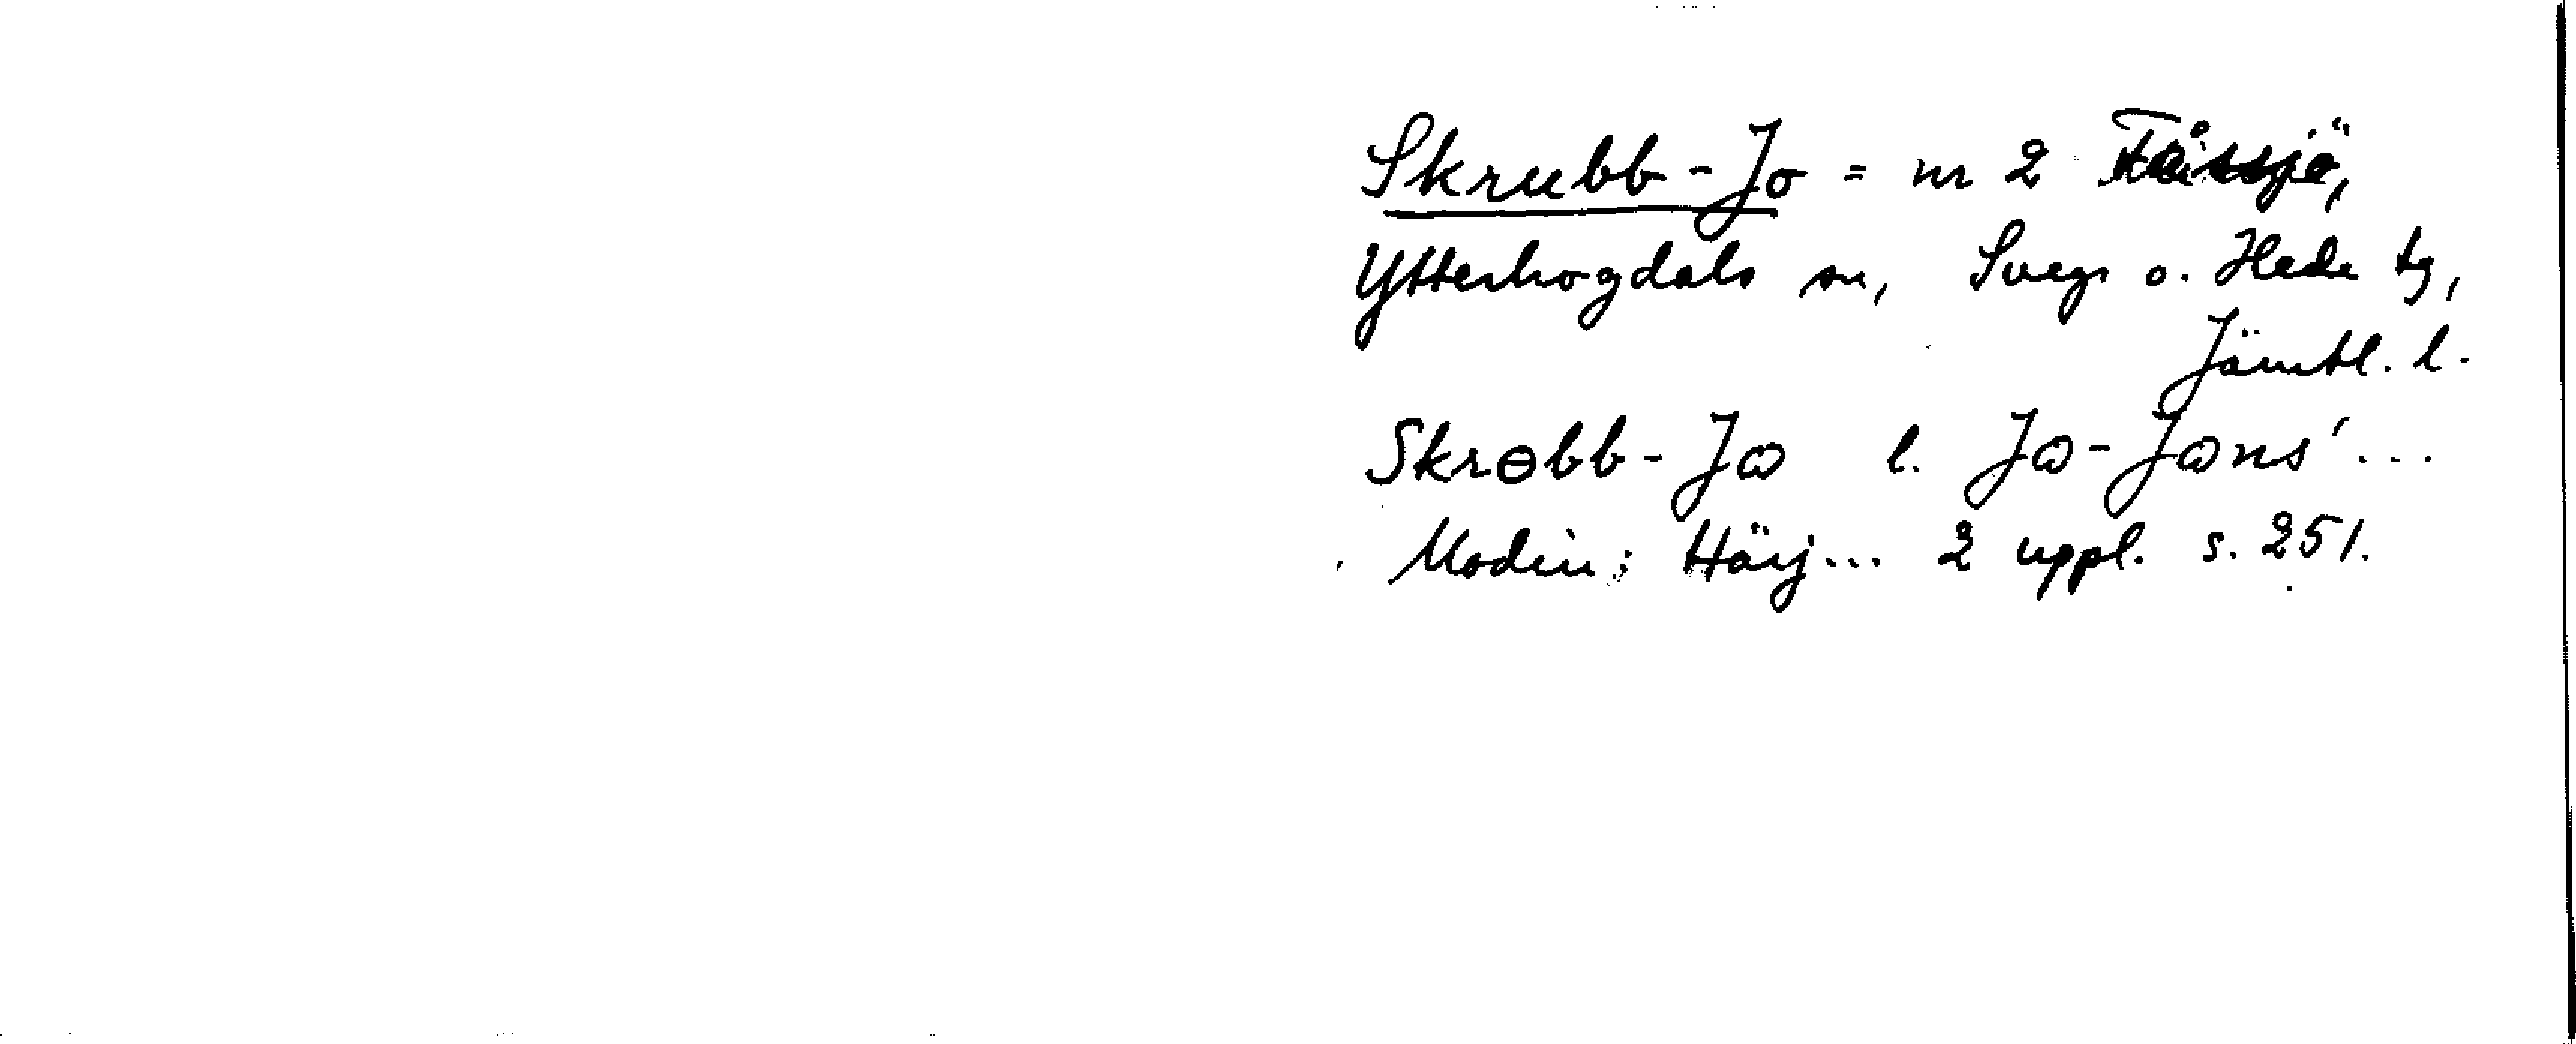 Skrubb-Jo = nr 2 Fåssjö,
Ytterhogdals sn, Svegs o. Hede tg,
Jämtl. l.
Skrɵbb-Jɷ l. Jɷ-Jɷns' ...
Modin: Härj... 2 uppl. s. 251.